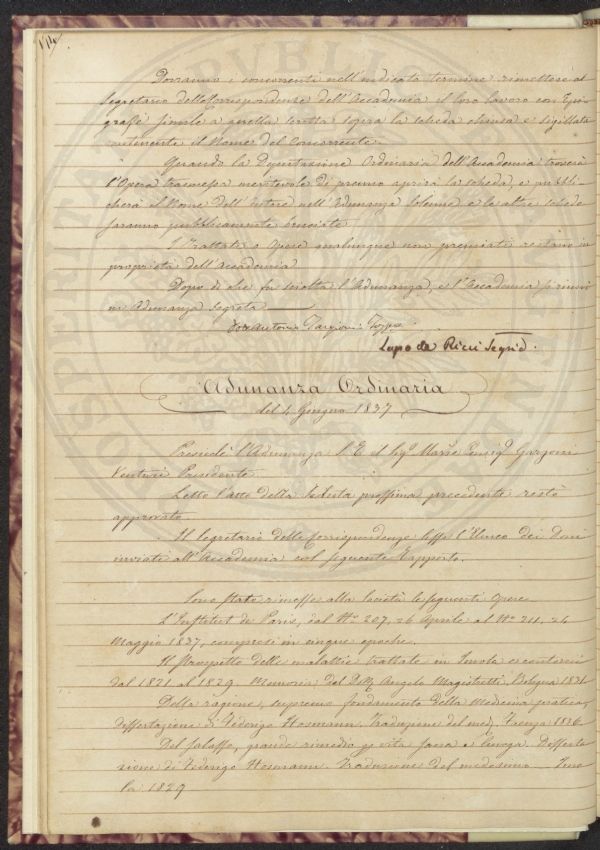 114
Dovranno i concorrenti nell'indicato termine rimettere al
Segretario delle Corrispondenze dell'Accademia il loro lavoro con Epi-
grafe simile a quella scritta sopra la scheda chiusa e sigillata
contenente il Nome del Concorrente.
Quando la Deputazione Ordinaria dell'Accademia troverà
l'Opera trasmessa meritevole di premio aprirà la scheda, e pubbli-
cherà il Nome dell'Autore nell'Adunanza Solenne, e le altre schede
saranno pubblicamente bruciate
I Trattati o Opere qualunque non premiati restano in
proprietà dell'Accademia
Dopo di che fu sciolta l'Adunanza, e l'Accademia si riunì
in Adunanza Segreta
Antonio Targioni Tozzetti
Lapo de Ricci Segrio.
Adunanza Ordinaria
del 4 Giugno 1837
Presiedè l'Adunanza S. E. il Sig.r March.e Garzoni
Venturi Presidente
Letto l'atto della Seduta prossima precedente restò
approvato
Il Segretario delle Corrispondenze lesse l'Elenco dei Doni
inviati all'Accademia col seguente Rapporto.
Sono state rimesse alla Società le seguenti Opere
L'Institut de Paris, dal N.o 207, 26 Aprile al N.o 211, 24
Maggio 1837, compresi in cinque epoche.
Il Prospetto delle malattie trattate in Imola e contorni
dal 1821 al 1829. Memoria del Dott. Angelo Magistretti. Bologna 1831
Della ragione, supremo fondamento della Medicina pratica,
dissertazione di Federigo Hosmann. Traduzione del med. Firenze 1836
Del salasso, grande rimedio p vita sana e lunga. Disserta-
zione di Federigo Hosmann. Traduzione del medesimo Imo
la 1829